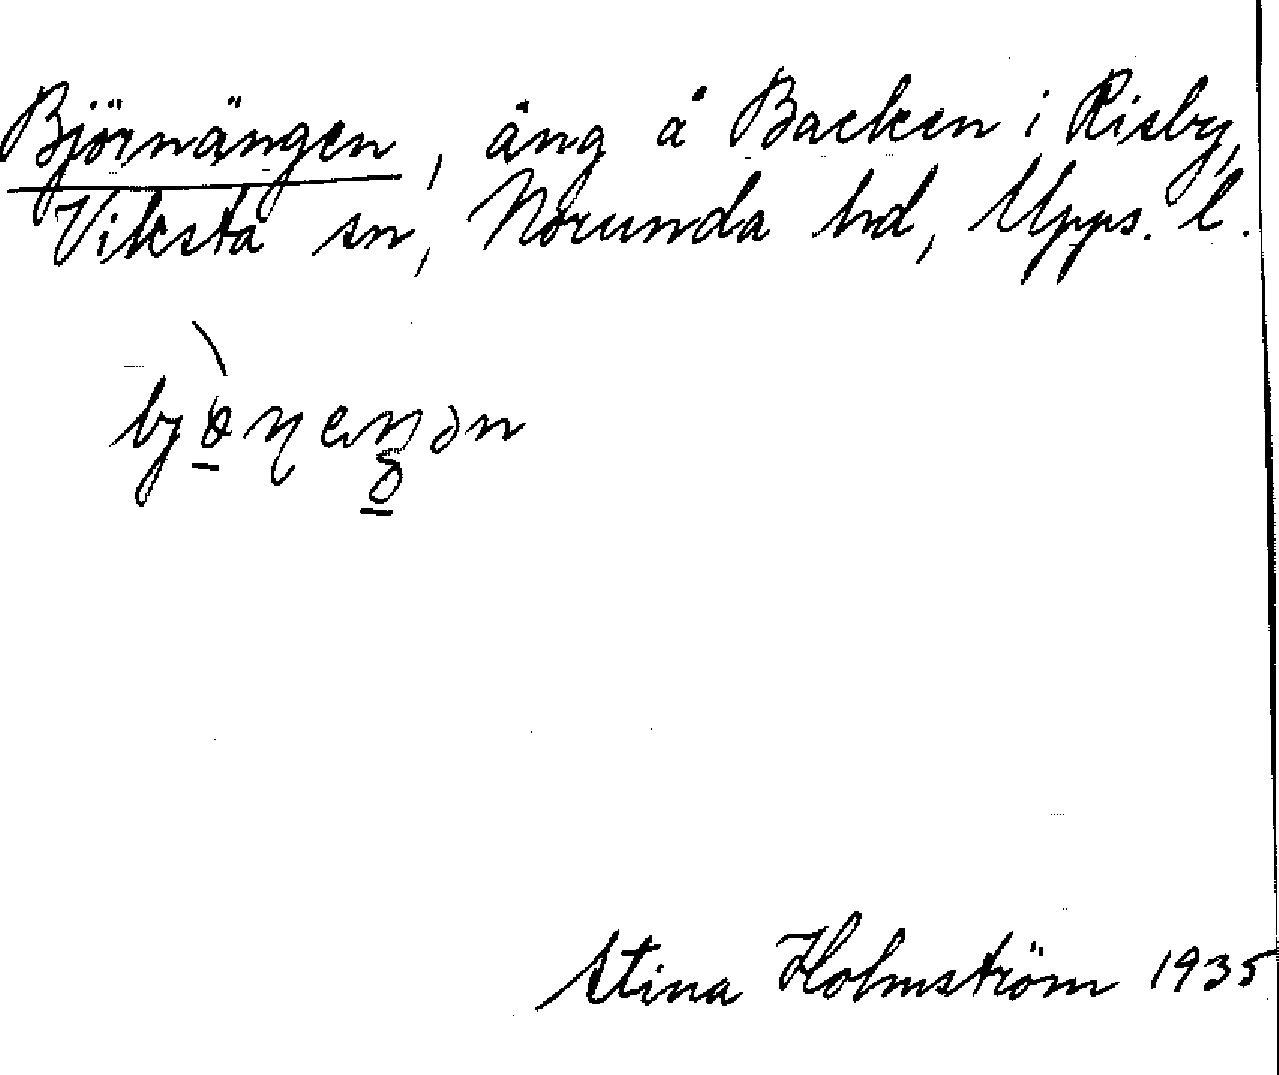 Björnängen, äng å Backen i Risby,
Viksta sn, Norunda hd, Upps. l.
Stina Holmström 1935